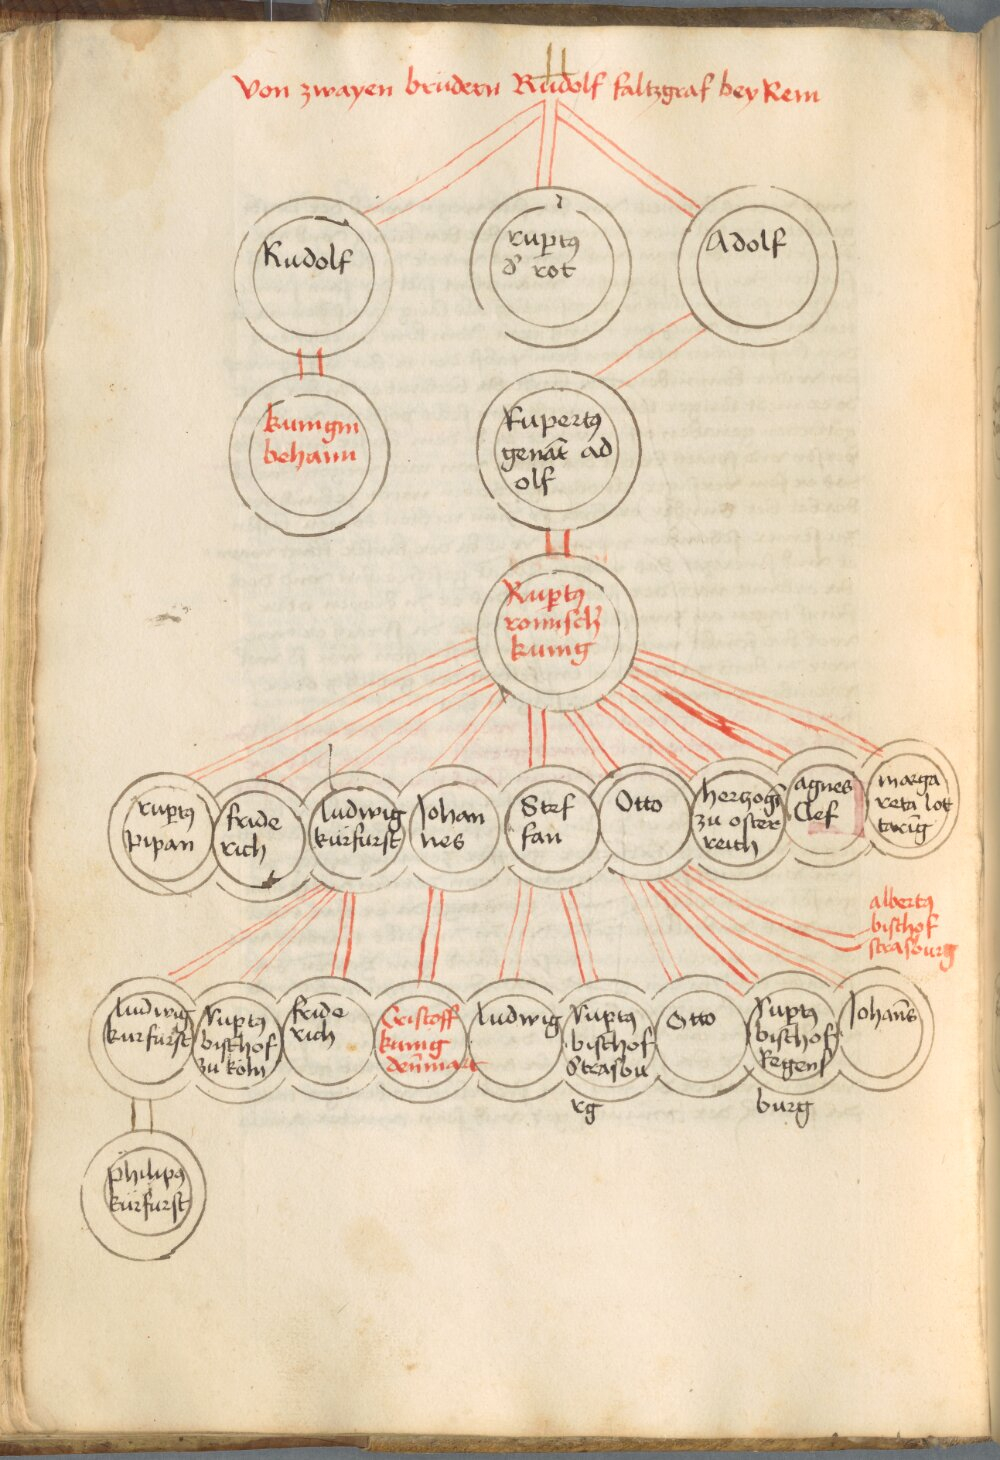 Von zwayen brudern Rudolf faltzgraf bey Rein
Rudolf
rupertꝰ
d' rot
Adolf
kunigin
behaim
Rupertꝰ
genāt ad
olf
Ruptꝰ
romisch
kunig
ruptꝰ
pipan
fride
rich
Ludwig
kurfurst
Johan
nes
Stef
fan
Otto
hertzogī
zu oster
reich
agnes
Clef
marga
reta lot
tarīg
albertꝰ
bischof
strasburg
Ludwig
kurfurst
Ruptꝰ
bischof
zu koln
fride
rich
Cristoff
kunig
denmarc
Ludwig
Ruptꝰ
bischof
Strasbu
rg
Otto
Ruptꝰ
bischof
Regens
burg
Johañs
philipꝰ
kurfurst